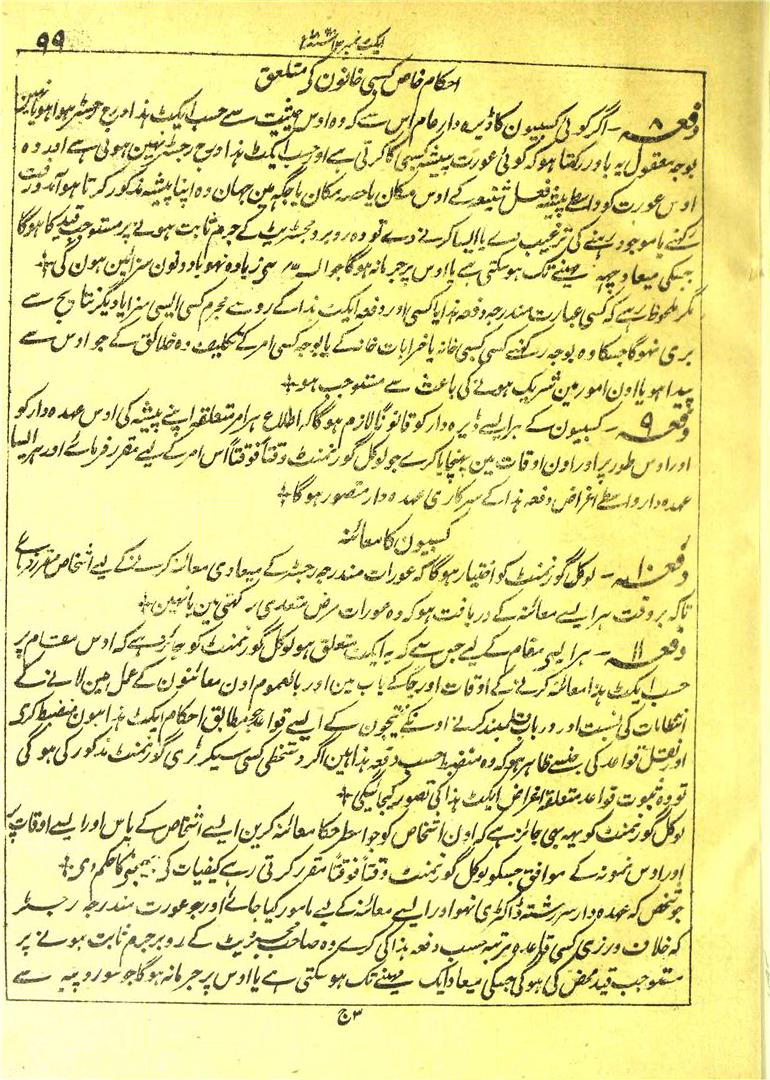 ایکٹ نمبر
۹۹
احکام خاص کسبی خانون کے متعلق
دفعہ ۸ - اگر کوئی کسبیون کا ڈیرہ دار عام اس سے کہ وہ اوس حیثیت سے حسب ایکٹ ہذا درج رجسٹر ہوا ہو یا نہین
بوجہ معقول یہ باور رکھتا ہو کہ کوئی عورت پیشہ کسبی کا کرتی ہے اور حسب ایکٹ ہذا درج رجسٹر نہین ہوئی ہے اور وہ
اوس عورت کو واسطے پیشہ فعل شنیعہ کے اوس مکان یا حصہ مکان یا جگہ مین جہان وہ اپنا پیشہ مذکور کرتا ہو آمد و رفت
رکھنے یا موجود رہنے کی ترغیب دے یا ایسا کرنے دے تو وہ روبرو مجسٹریٹ کے جرم ثابت ہونے پر مستوجب قید کا ہوگا
جسکی میعاد چھہ مہینے تک ہو سکتی ہے یا اوس پر جرمانہ ہوگا جو سے زیادہ نہو یا دونون سزائین ہون گی
مگر ملحوظ رہے کہ کسی عبارت مندرجہ دفعہ ہذا یا کسی اور دفعہ ایکٹ ہذا کے رو سے مجرم کسی ایسی سزا یا دیگر نتایج سے
بری نہوگا جسکا وہ بوجہ رکھنے کسی کسبی خانہ یا خرابات خانہ کے یا بوجہ کسی امر کے تکلیف دہ خلائق کے جو اوس سے
پیدا ہو یا اون امور مین شریک ہونے کی باعث سے مستوجب ہو
دفعہ ۹ - کسبیون کے ہر ایسے ڈیرہ دار کو قانوناً لازم ہوگا کہ اطلاع ہر امر متعلقہ اپنے پیشہ کی اوس عہدہ دار کو
اور اوس طور پر اور اون اوقات مین پہنچایا کرے جو لوکل گورنمنٹ وقتاً فوقتاً اس امر کے لیے مقرر فرمائے اور ہر ایسا
عہدہ دار واسطے اغراض دفعہ ہذا کے سرکاری عہدہ دار متصور ہوگا
کسبیون کا معائنہ
دفعہ ۱۰ - لوکل گورنمنٹ کو اختیار ہوگا کہ عورات مندرجہ رجسٹر کے میعادی معائنہ کرنے کے لیے اشخاص مقرر فرمائے
تاکہ بروقت ہر ایسے معائنہ کے دریافت ہو کہ وہ عورات مرض متعدی رکھتی ہین یا نہین
دفعہ ۱۱ - ہر ایسے مقام کے لیے جس سے کہ یہ ایکٹ متعلق ہو لوکل گورنمنٹ کو جائز ہے کہ اوس مقام پر
حسب ایکٹ ہذا معائنہ کرنے کے اوقات اور جگہ کے باب مین اور بالعموم اون معائنون کے عمل مین لانے کے
انتظامات کی نسبت اور درباب قلمبند کرنے اونکے نتیجون کے ایسے قواعد جو مطابق احکام ایکٹ ہذا ہون منضبط کرے
اور نقل قواعد کی جنسے ظاہر ہو کہ وہ منضبط حسب دفعہ ہذا ہین اگر دستخطی کسی سیکرٹری گورنمنٹ مذکور کی ہوگی
تو وہ ثبوت قواعد متعلقہ اغراض ایکٹ ہذا کی تصور کیجائیگی
لوکل گورنمنٹ کو یہہ بھی جائز ہے کہ اون اشخاص کو جو اسطرحکا معائنہ کرین ایسے اشخاص کے پاس اور ایسے اوقات پر
اور اوس نمونہ کے موافق جسکو لوکل گورنمنٹ وقتاً فوقتاً مقرر کرتی رہے کیفیات کے بھیجنے کا حکم دے
جو شخص کہ عہدہ دار سررشتہ ڈاکٹری نہو اور ایسے معائنہ کے لیے مامور کیا جائے اور جو عورت مندرجہ رجسٹر
کہ خلاف ورزی کسی قاعدہ مرتبہ حسب دفعہ ہذا کی کرے وہ صاحب مجسٹریٹ کے روبرو جرم ثابت ہونے پر
مستوجب قید محض کی ہوگی جسکی میعاد ایک مہینے تک ہو سکتی ہے یا اوس پر جرمانہ ہوگا جو سو روپیہ سے
۳ج